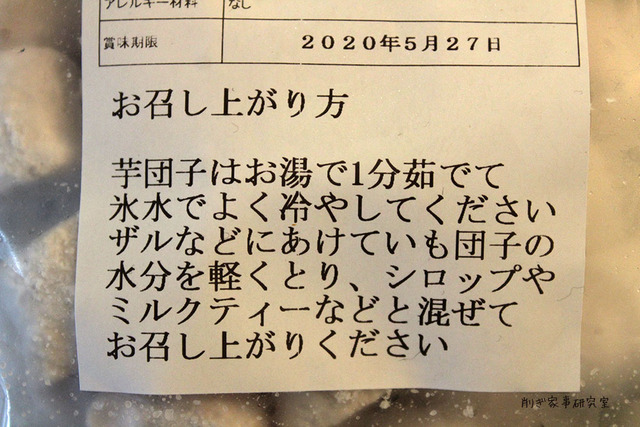 アレルギー材料 なし
賞味期限 2020年5月27日
お召し上がり方
芋団子はお湯で1分茹でて
氷水でよく冷やしてください
ザルなどにあけていも団子の
水分を軽くとり、シロップや
ミルクティーなどと混ぜて
お召し上がりください
削ぎ家事研究室